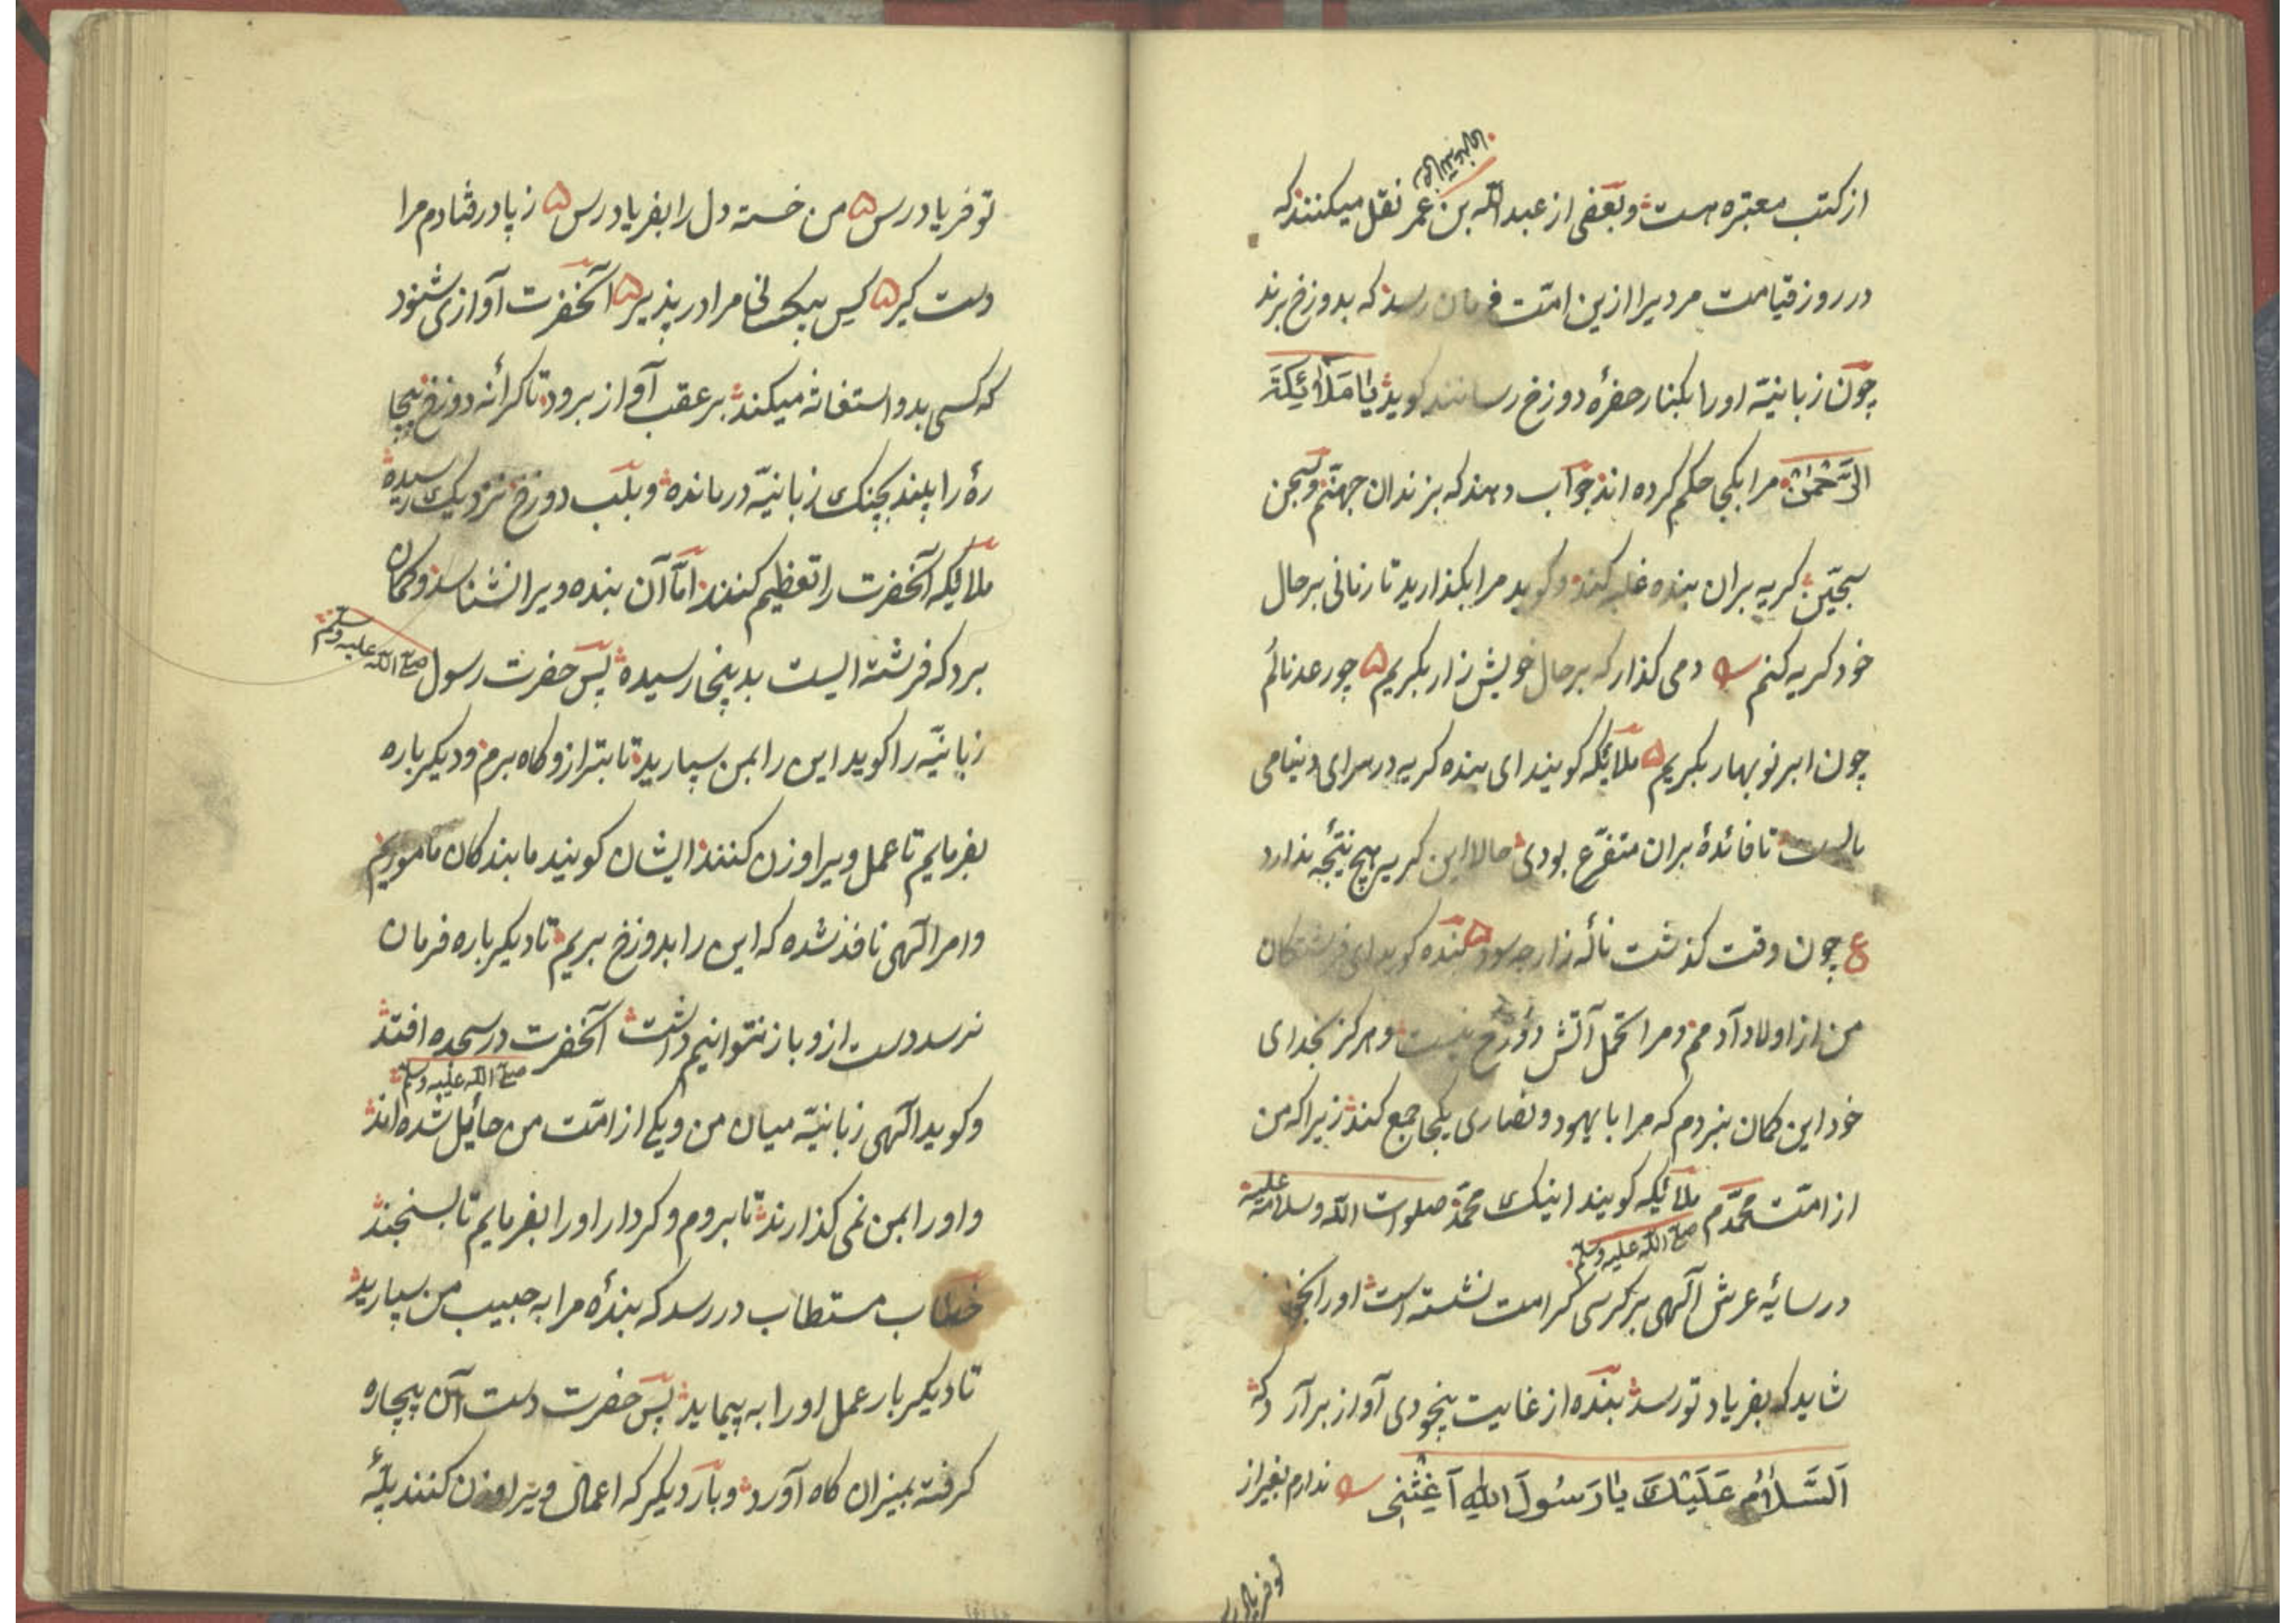 از کتب معتبره است و بعضی از عبد الله بن عمر رضی الله عنهما نقل میکنند که
در روز قیامت مردیرا ازین امّت فرمان رسد که بدوزخ برند
چون زبانیّه اورا بکنار حفرهٔ دوزخ رسانند کوید یَا مَلَائِکَةَ
الرَّحْمٰنِ مرا بکجا حکم کرده اند جواب دهند که بزندان جهنّم و سجن
سجّین کریه بران بنده غلبه کند و کوید مرا بکذارید تا زمانی بر حال
خود کریه کنم دمی کذار که بر حال خویش زار بکریم چو رعد نالم
چون ابر نوبهار بکریم ملائکه کویند ای بنده کریه در سرای دنیا می
بایست تا فائدهٔ بران متفرّع بودی حالا این کریه هیچ نتیجه ندارد
ع چون وقت کذشت نالهٔ زار چه سود بنده کوید ای فرشتکان
من از اولاد آدمم و مرا تحمل آتش دوزخ نیست و هرکز بخدای
خود این کمان نبردم که مرا با یهود و نصاری یکجا جمع کند زیرا که من
از امّت محمّدم صلی الله علیه وسلم ملائکه کویند اینک محمّد صلوات الله وسلامه علیه
در سایهٔ عرش آلهی بر کرسی کرامت نشسته است اورا بخوان
شاید که بفریاد تو رسد بنده از غایت بیخودی آواز برآرد که
اَلسَّلَامُ عَلَیْكَ یَا رَسُولَ اللهِ اَغِثْنِی ندارم بغیر از
تو فریاد رس
تو فریاد رس من خسته دل را بفریاد رس ز پا در فتادم مرا
دست کیر کس بیکسانی مرا در پذیر آنحضرت آوازی شنود
که کسی بدو استغاثه میکند بر عقب آواز برود تا کرانهٔ دوزخ بیچا
رهٔ را بیند بچنک زبانیّه درمانده و بلب دوزخ نزدیک رسیده
ملائکه آنحضرت را تعظیم کنند امّا آن بنده ویرا نشناسد و کمان
برد که فرشته ایست بدینجا رسیده پس حضرت رسول صلی الله علیه وسلم
زبانیّه را کوید این را بمن سپارید تا بترازوکاه برم و دیکر باره
بفرمایم تا عمل ویرا وزن کنند ایشان کویند ما بندکان مأموریم
و امر آلهی نافذ شده که این را بدوزخ بریم تا دیکر باره فرمان
نرسد دست ازو باز نتوانیم داشت آنحضرت صلی الله علیه وسلم در سجده افتد
و کوید آلهی زبانیّه میان من و یکی از امّت من حایل شده اند
و اورا بمن نمی کذارند تا بروم و کردار اورا بفرمایم تا بسنجند
خطاب مستطاب در رسد که بندهٔ مرا به حبیب من سپارید
تا دیکر بار عمل اورا به پیماید پس حضرت دست آن بیچاره
کرفته بمیزان کاه آورد و بار دیکر که اعمال ویرا وزن کنند پلّهٔ